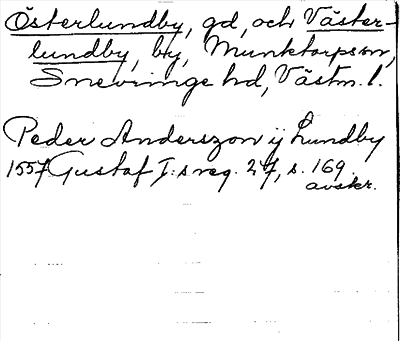 Österlundby, gd, och Väster-
lundby, by, Munktorps sn,
Snevringe hd, Västm. l.
Peder Anderszon ij Lundby
1557 Gustaf I:s reg. 27, s. 169
avskr.